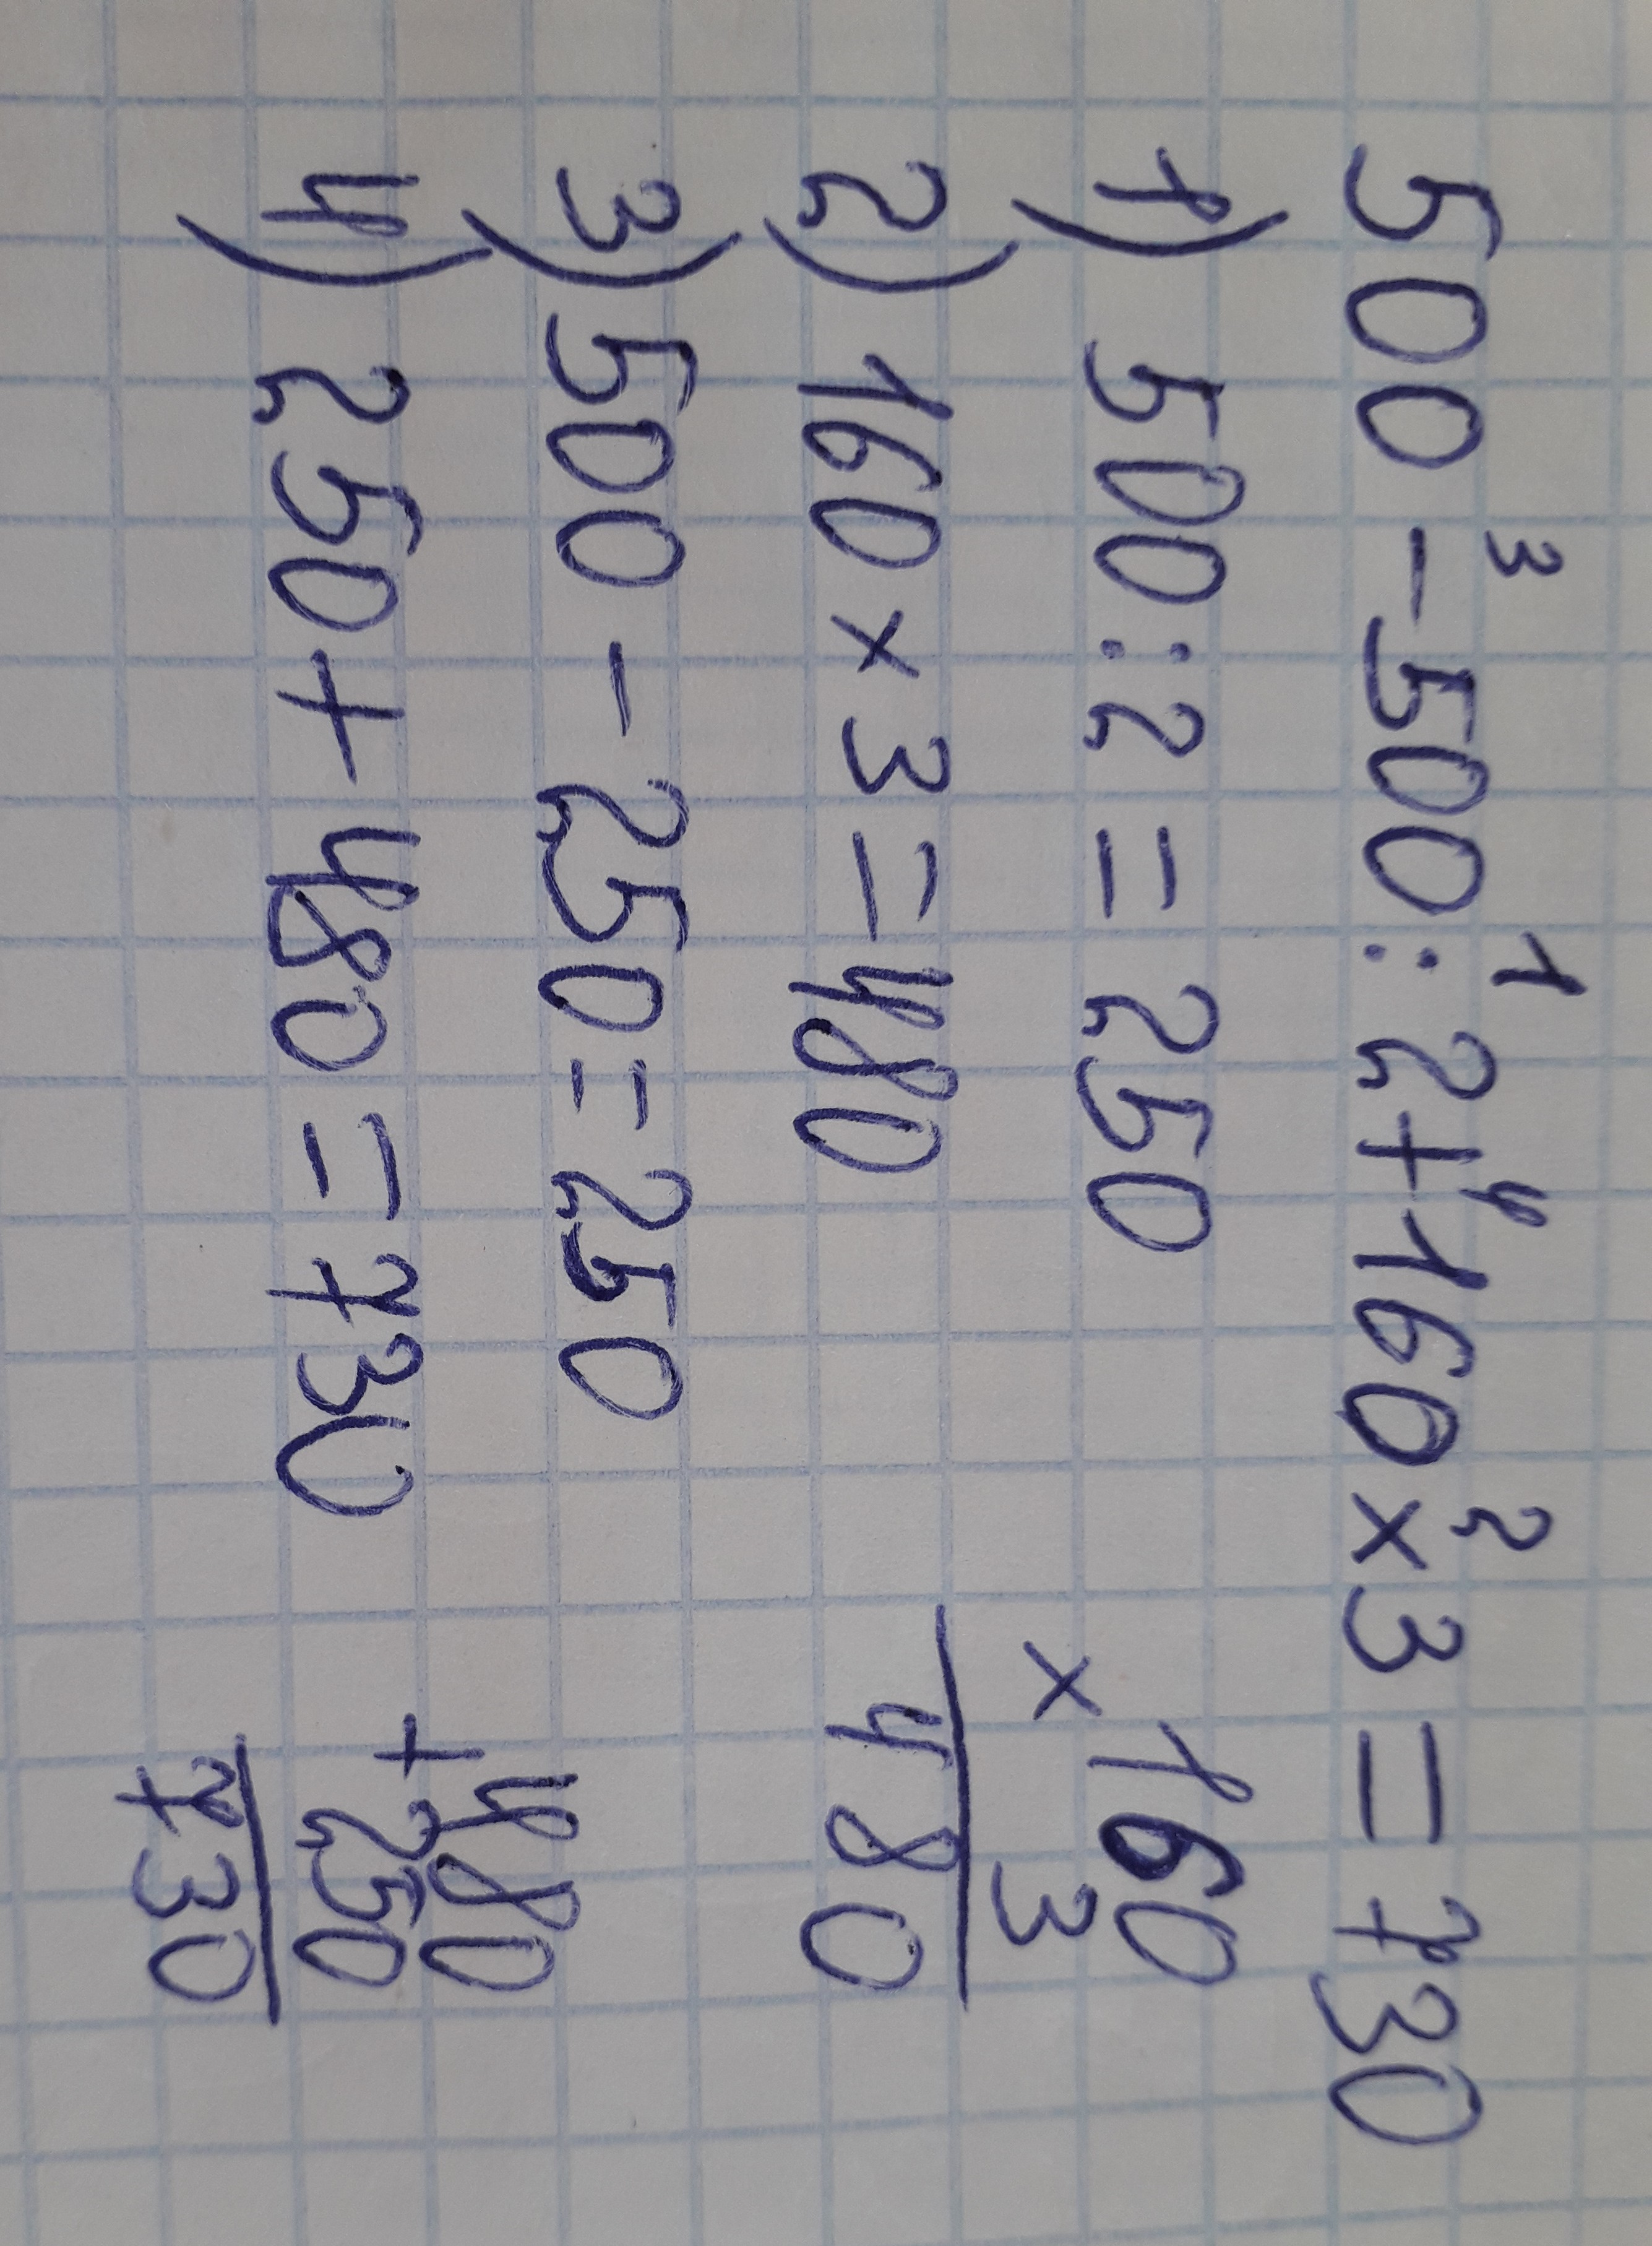 3 1 4 2
500 - 500 : 2 + 160 × 3 = 730
1) 500 : 2 = 250
2) 160 × 3 = 480
3) 500 - 250 = 250
4) 250 + 480 = 730
× 160
3
480
+ 480
250
730